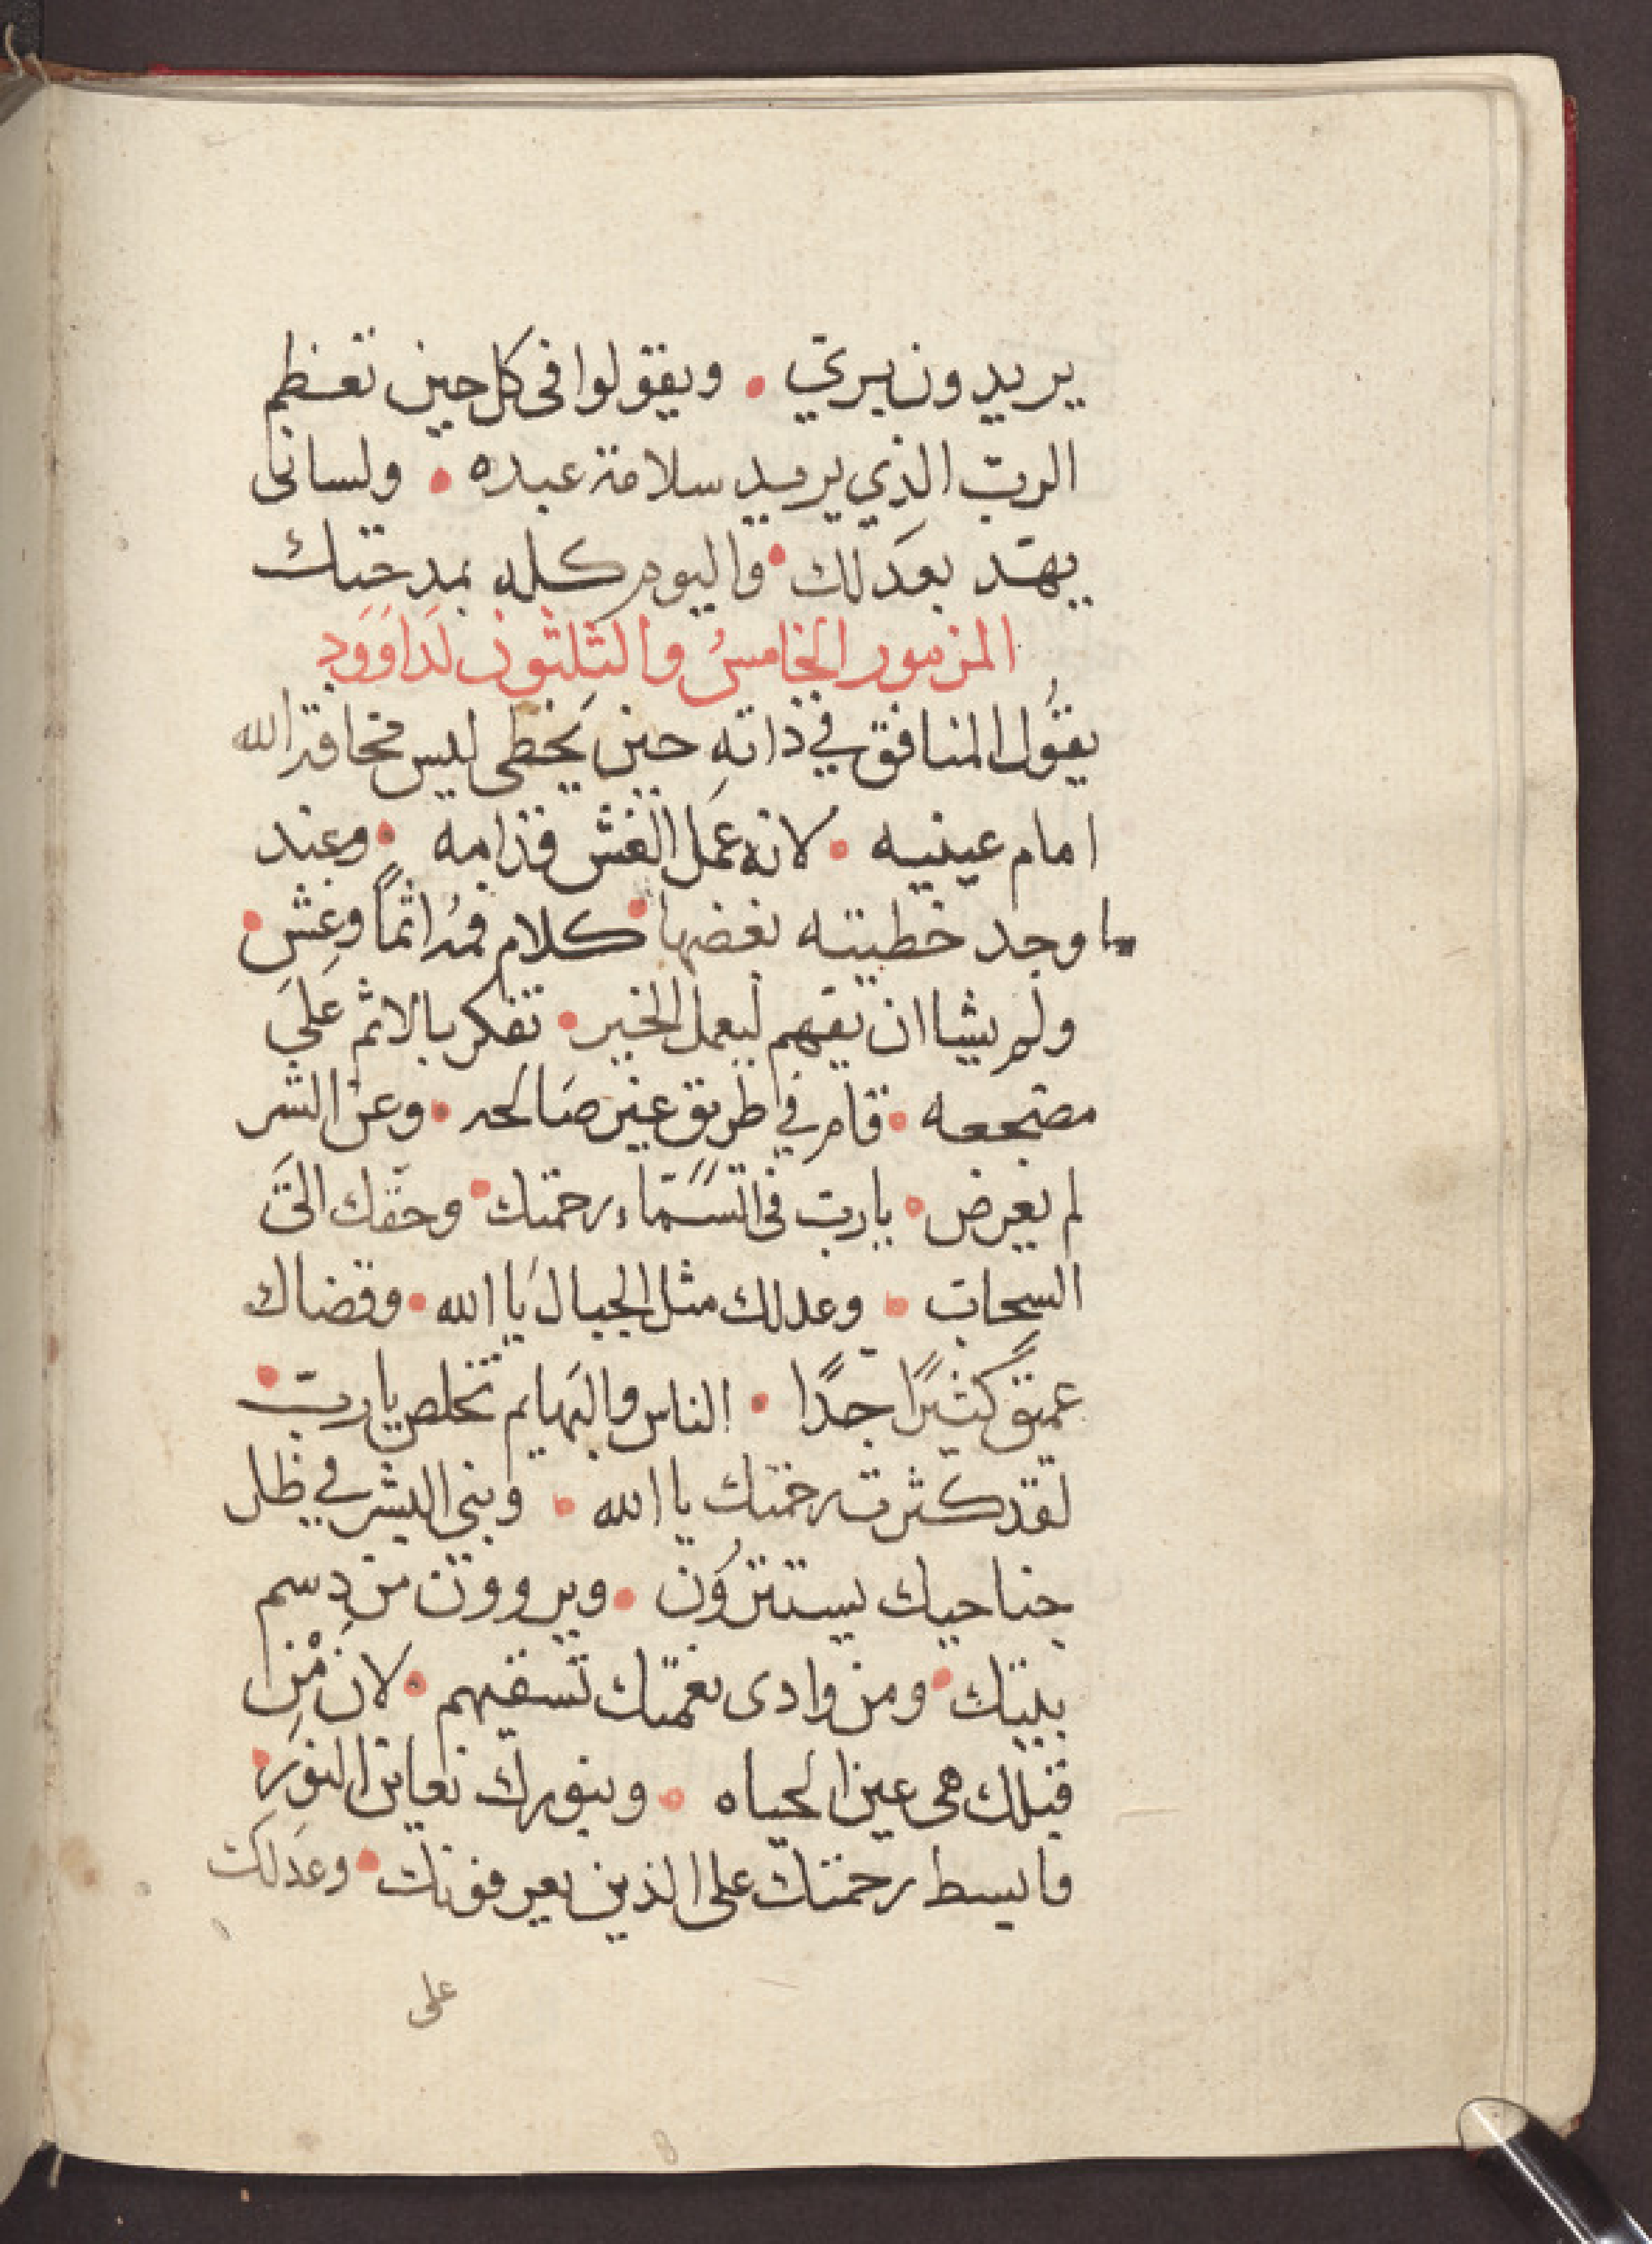 يريدون بري • ويقولوا في كل حين تعظم
الرب الذي يريد سلامة عبده • ولساني
يهتد بعدلك • واليوم كله بمدحتك
المزمور الخامس والثلثون لداوود
يقول المنافق في ذاته حين يخطي ليس مخافة الله
امام عينيه • لانه عمل الغش قدامه • وعند
ما وجد خطيته بغضها • كلام فمه اثماً وغش •
ولم يشا ان يفهم ليعمل الخير • تفكر بالاثم علي
مضجعه • قام في طريق غير صالحه • وعن الشر
لم يعرض • يارب في السماء رحمتك • وحقك الى
السحاب • وعدلك مثل الجبال يا الله • وقضاك
عميق كثيرًا جدًا • الناس والبهايم تخلص يارب •
لقد كثرت رحمتك يا الله • وبني البشر في ظل
جناحيك يستترون • ويروون من دسم
بيتك • ومن وادى نعمتك تسقيهم • لان من
قبلك هى عين الحياه • وبنورك نعاين النور •
فابسط رحمتك على الذين يعرفونك • وعدلك
على